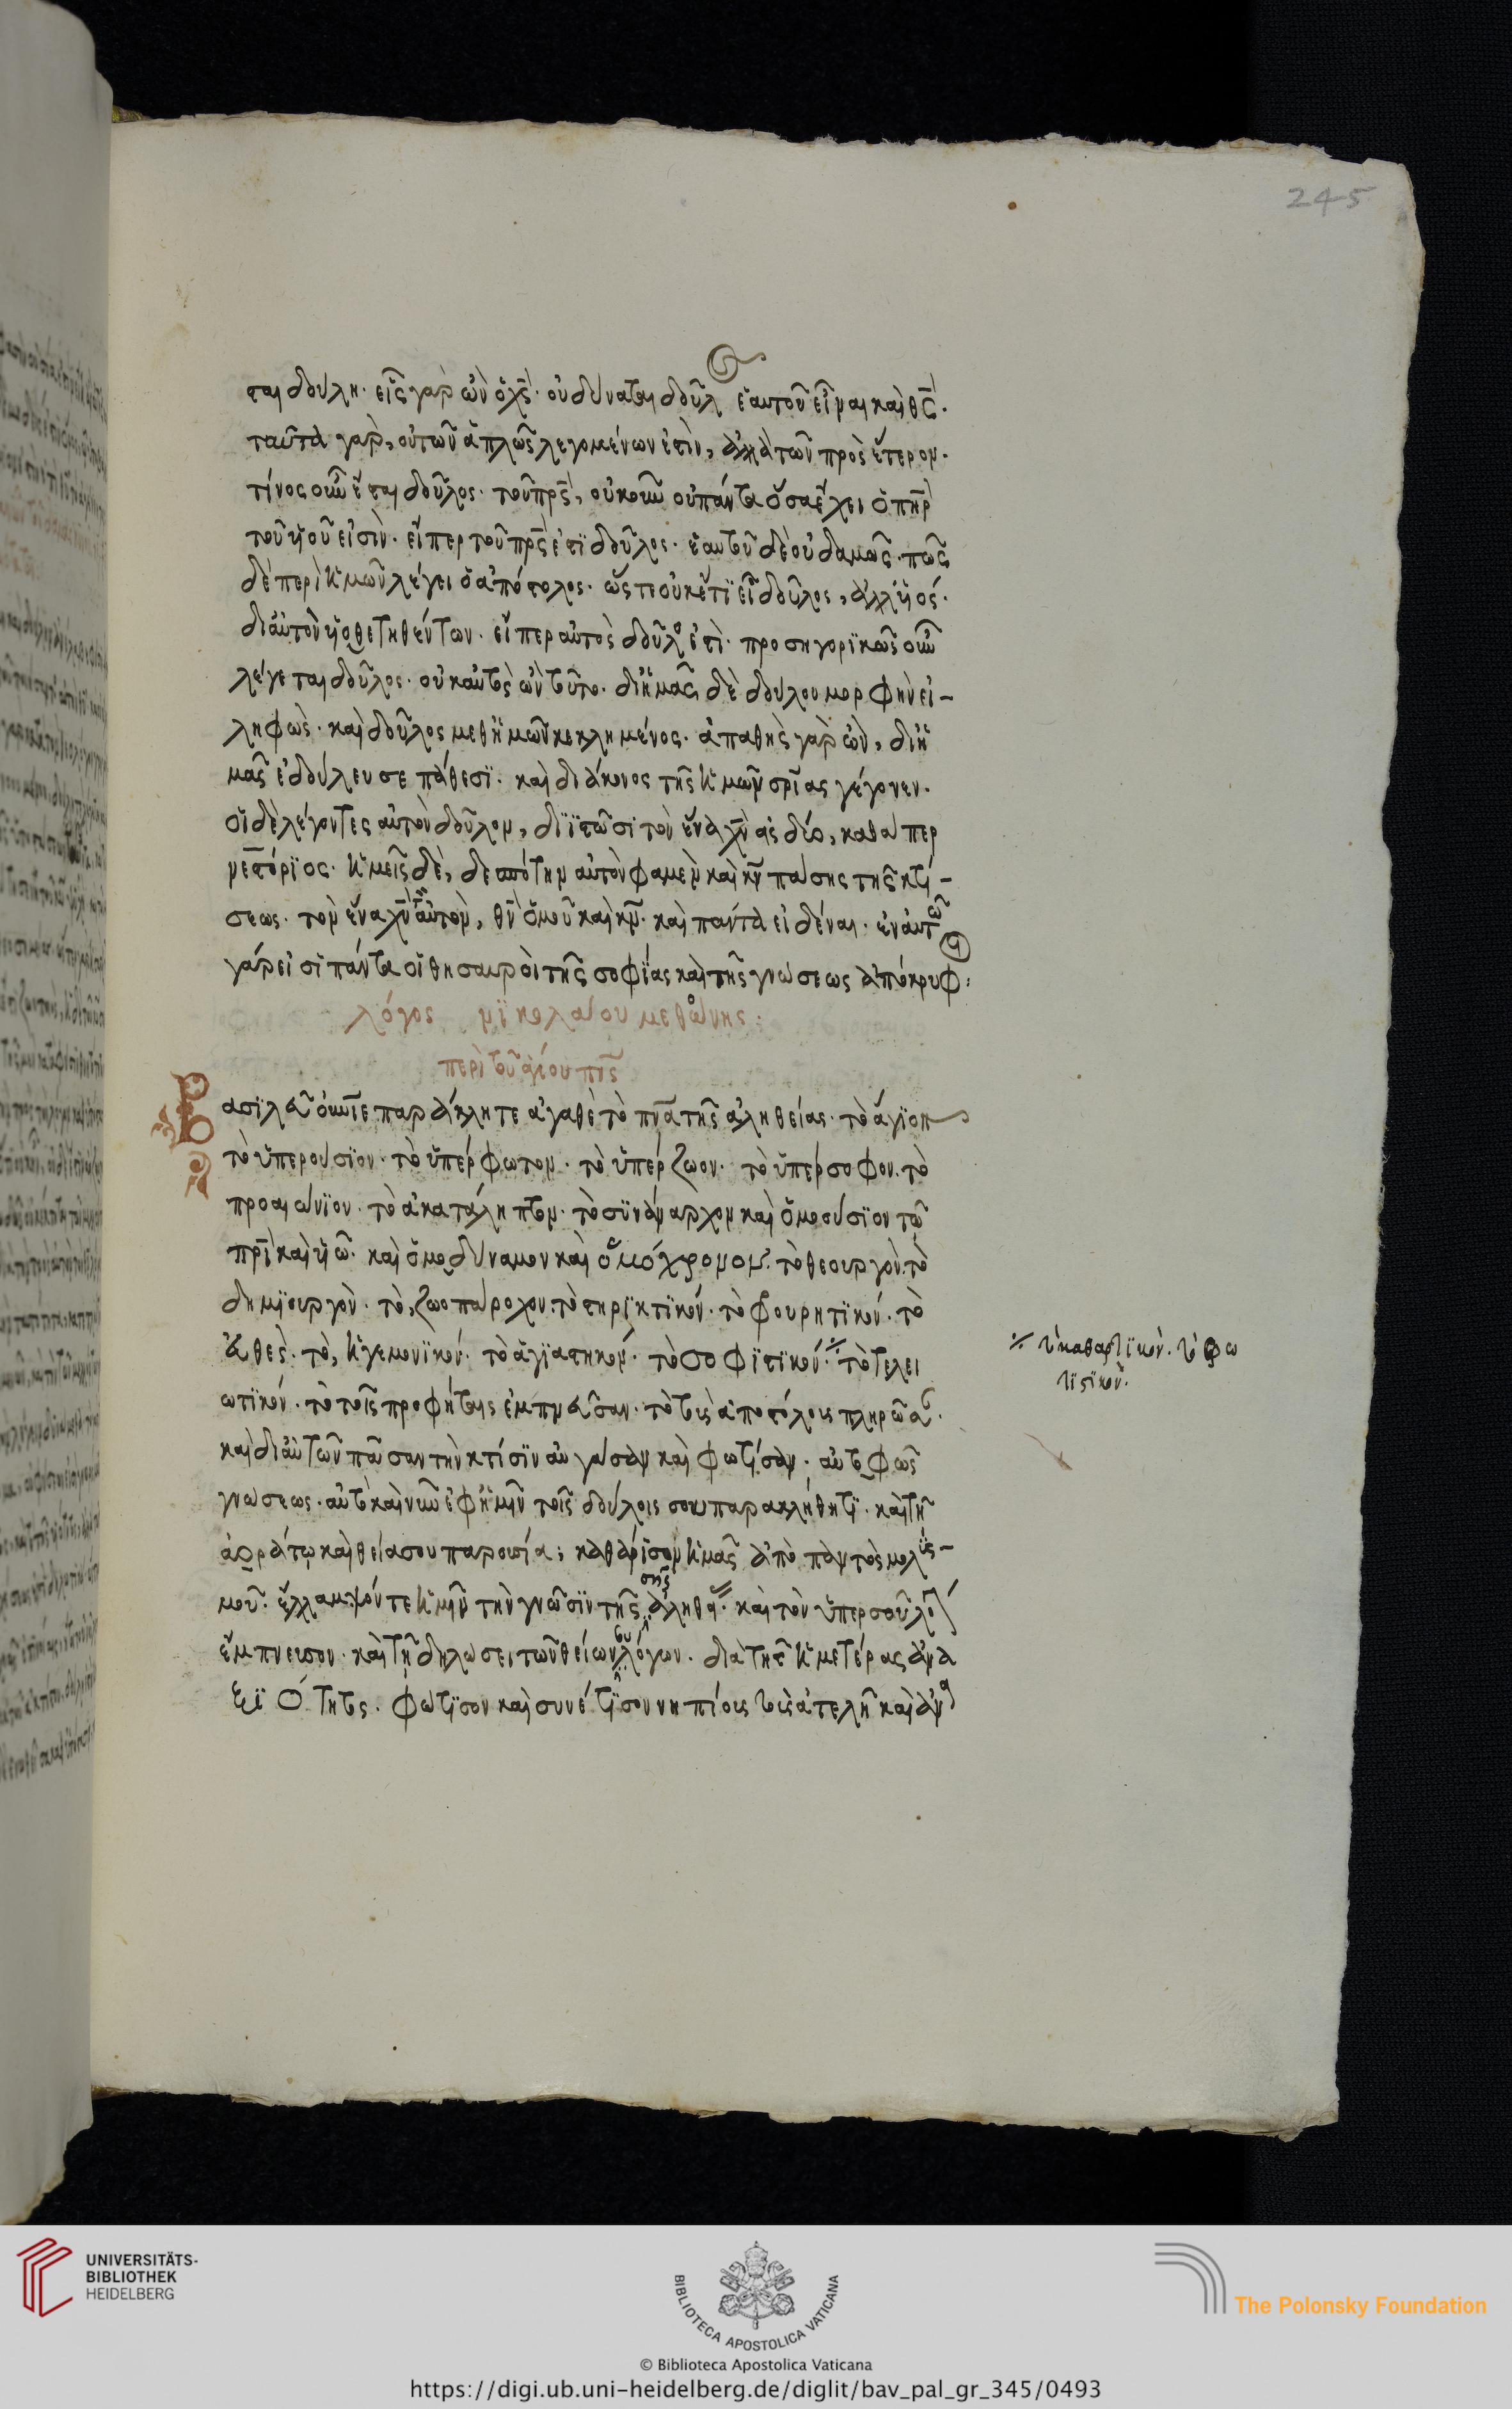 245
ται δούλη· εἷς γὰρ ὢν ὁ χς· οὐ δύναται δοῦλος ἑαυτοῦ εἶναι καὶ θς·
ταῦτα γὰρ, οὐ τῶν ἁπλῶς λεγομένων ἐστὶν, ἀλλὰ τῶν πρὸς ἕτερον·
τίνος οὖν ἔσται δοῦλος· τοῦ πρς, οὐκοῦν οὐ πάντα ὅσα ἔχει ὁ πηρ
τοῦ υἱοῦ εἰσίν· εἴπερ τοῦ πρς ἐστὶ δοῦλος· ἑαυτοῦ δὲ οὐδαμῶς· πῶς
δὲ περὶ ἡμῶν λέγει ὁ ἀπόστολος· ὥστε οὐκέτι εἶ δοῦλος, ἀλλ' υἱός·
δι' αὐτὸν υἱοθετηθέντων· εἴπερ αὐτὸς δοῦλός ἐστι· προσηγορικῶς οὖν
λέγεται δοῦλος· οὐκ αὐτὸς ὢν τοῦτο· δι' ἡμᾶς δὲ δούλου μορφὴν εἰ-
ληφὼς· καὶ δοῦλος μεθ' ἡμῶν κεκλημένος· ἀπαθὴς γὰρ ὢν, δι' ἡ
μᾶς ἐδούλευσε πάθεσι· καὶ διάκονος τῆς ἡμῶν σρίας γέγονεν·
οἱ δὲ λέγοντες αὐτὸν δοῦλον, διϊστῶσι τὸν ἕνα χν εἰς δύο, καθάπερ
νεστόριος· ἡμεῖς δὲ, δεσπότην αὐτὸν φαμὲν καὶ κν πάσης τῆς κτί-
σεως· τὸν ἕνα χν τὸν αὐτὸν, θν ὁμοῦ καὶ κν· καὶ πάντα εἰδέναι· ἐν αὐτῶ
γάρ εἰσι πάντα οἱ θησαυροὶ τῆς σοφίας καὶ τῆς γνώσεως ἀπόκρυφοι:
λόγος νικολάου μεθώνης:
περὶ τοῦ ἁγίου πνς
Βασιλεῦ οὐνιε παράκλητε ἀγαθὲ τὸ πνα τῆς ἀληθείας· τὸ ἅγιον
τὸ ὑπερούσιον· τὸ ὑπέρφωτον· τὸ ὑπέρζωον· τὸ ὑπέρσοφον· τὸ
προαιώνιον· τὸ ἀκατάληπτον· τὸ συνάναρχον καὶ ὁμοούσιον τῶ
πρι καὶ υἱῶ· καὶ ὁμοδύναμον καὶ ὁμόχρονον· τὸ θεουργὸν· τὸ
δημιουργὸν· τὸ, ζωοπάροχον· τὸ στηρικτικόν· τὸ φουρητικόν· τὸ
εὐθὲς· τὸ, ἡγεμονικόν· τὸ ἁγιαστηκόν· τὸ σοφιστικόν·⁒ τὸ τελει
ωτικόν· τὸ τοῖς προφήταις ἐμπνεῦσαν· τὸ τοῖς ἀποστόλοις πληρῶσαν·
καὶ δι' αὐτῶν πᾶσαν τὴν κτίσιν αὐγάσαν καὶ φωτίσαν· αὐτὸ φῶς
γνώσεως· αὐτὸ καὶ νῦν ἐφ' ἡμῖν τοῖς δούλοις σου παρακλήθητι· καὶ τῆ
ἀοράτω καὶ θεία σου παρουσία; καθάρισον ἡμᾶς ἀπὸ παντὸς μολυσ-
μοῦ· ἔλλαμψόν τε ἡμῖν τὴν γνῶσιν τῆς σῆς ἀληθείας· καὶ τὸν ὑπὲρ σοῦ λόγον
ἔμπνευσον· καὶ τῆ δηλώσει τῶν θείων σου λόγων· διὰ τῆς ἡμετέρας ἀνα
ξιότητος· φώτισον καὶ συνέτισον νηπίους τοὺς ἀτελῆ καὶ ἀν
⁒ τὸ καθαρτικὸν· τὸ φω
τιστικὸν·
UNIVERSITÄTS-
BIBLIOTHEK
HEIDELBERG
BIBLIOTECA APOSTOLICA VATICANA
The Polonsky Foundation
© Biblioteca Apostolica Vaticana
https://digi.ub.uni-heidelberg.de/diglit/bav_pal_gr_345/0493